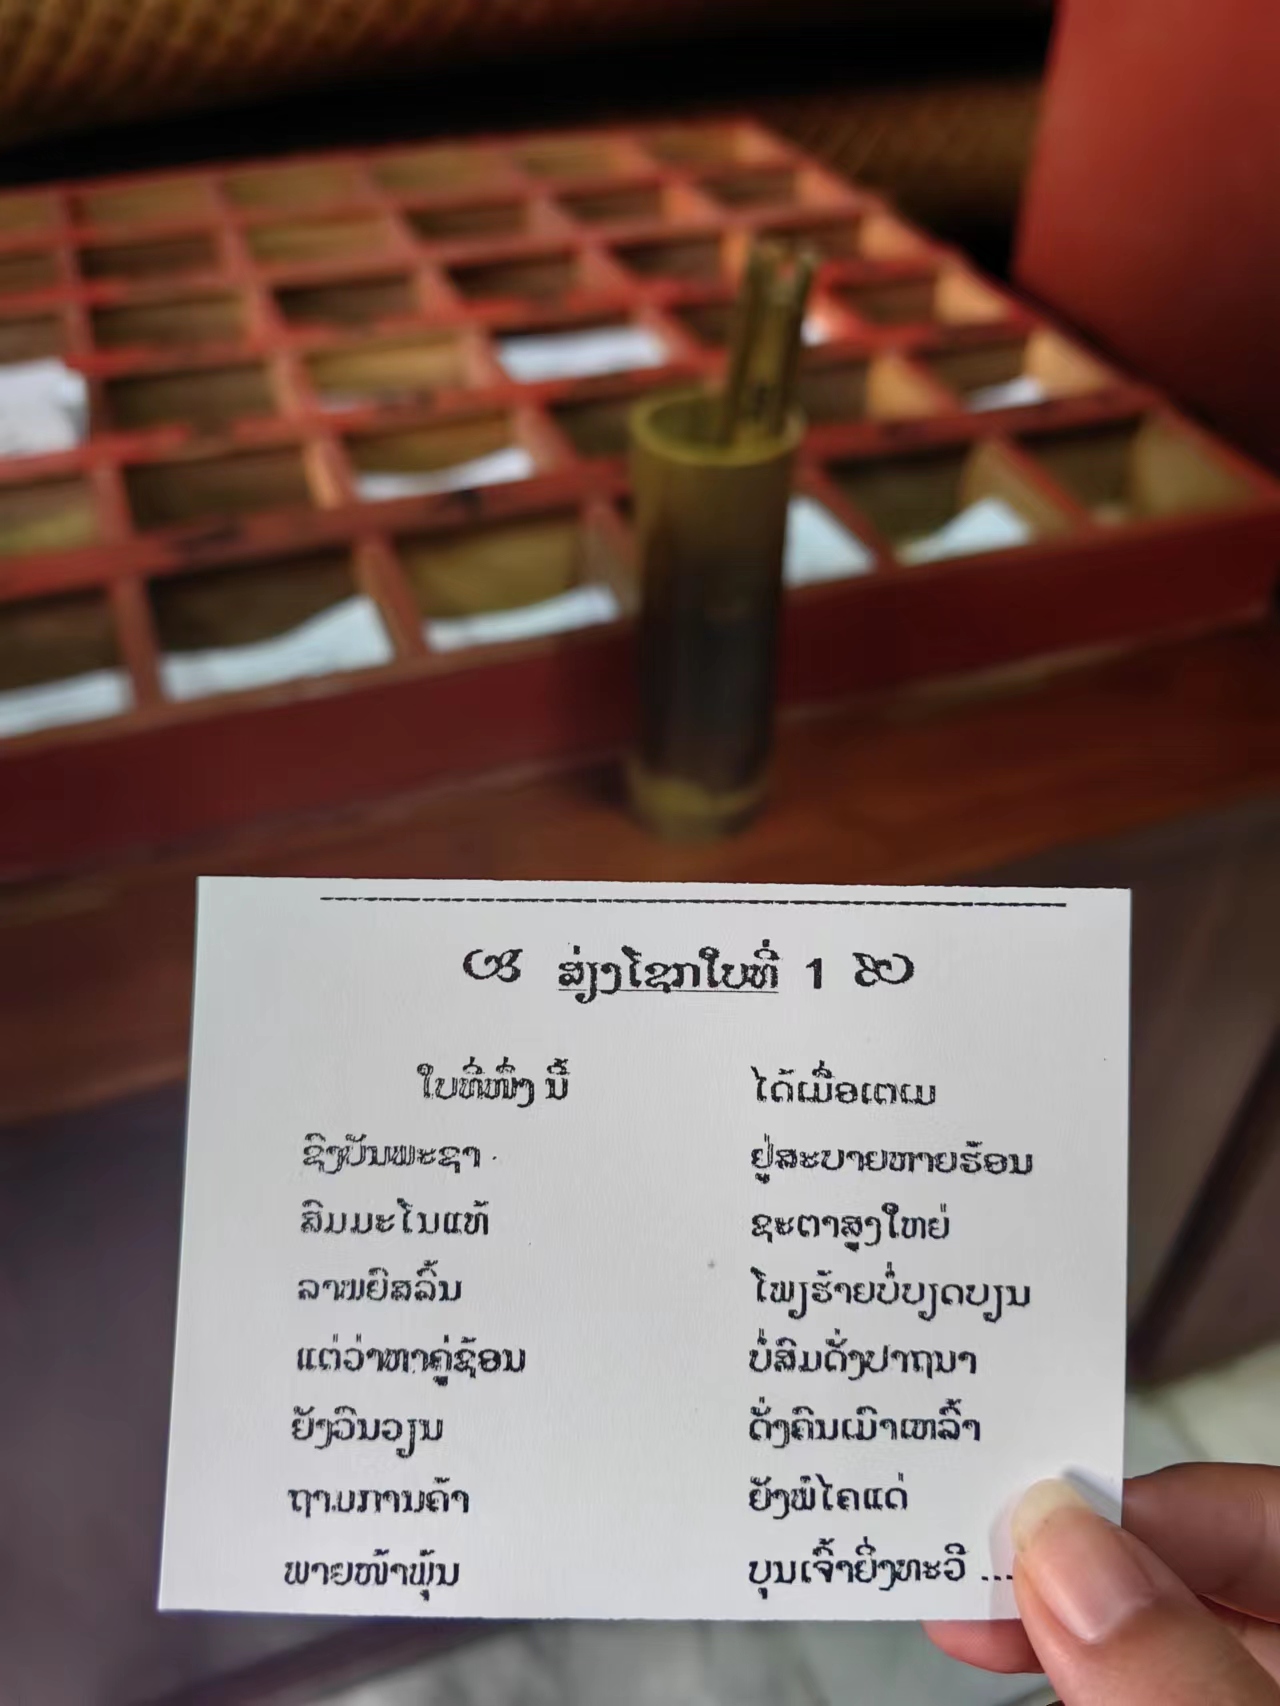 ສ່ຽງໂຊກໃບທີ່ 1
ໃບທີ່ໜຶ່ງ ນີ້ ໄດ້ເມື່ອເຕເມ
ຊົງປັນພະຊາ ຢູ່ສະບາຍຫາຍຮ້ອນ
ສົມມະໂນແທ້ ຊະຕາສູງໃຫຍ່
ລາພຍົສລົ້ນ ໂພຽຮ້າຍບໍ່ບຽດບຽນ
ແຕ່ວ່າຫາຄູ່ຊ້ອນ ບໍ່ສົມດັ່ງປາຖນາ
ຍັງວົນວຽນ ດັ່ງຄົນເມົາເຫລົ້າ
ຖາມການຄ້າ ຍັງພໍໄຄແດ່
ພາຍໜ້າພຸ້ນ ບຸນເຈົ້າຍິ່ງທະວີ ...